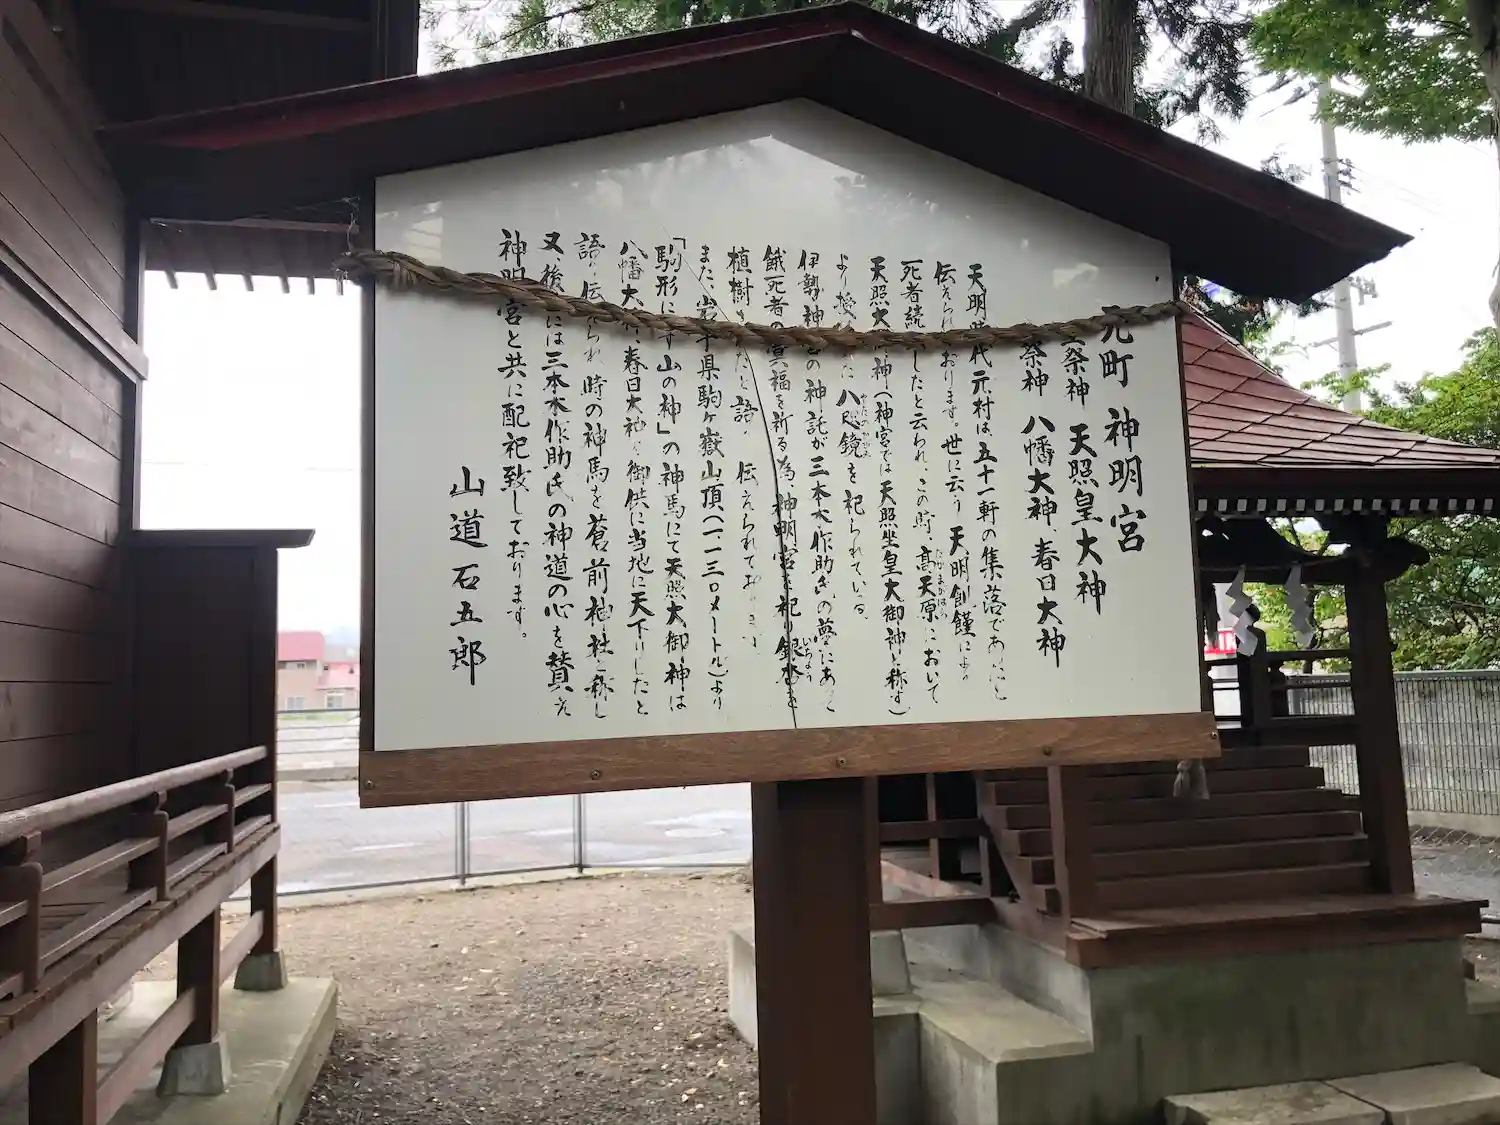 元町 神明宮
主祭神 天照皇大神
祭神 八幡大神、春日大神
天明時代元村は、五十一軒の集落であったと
伝えられております。世に云う 天明飢饉により
死者続 したと云われ、この時、高天原において
たかまがはら
天照大 神(神宮では天照坐皇大御神と称す)
より授 た八咫鏡を祀られている。
やたのかがみ
伊勢神宮の神託が三本木作助氏の夢にあって
餓死者の冥福を祈る為、神明宮を祀り銀杏を
いちょう
植樹 たと語り伝えられております。
また、岩手県駒ヶ嶽山頂(一、一三〇メートル)より
「駒形に 山の神」の神馬にて天照大御神は
八幡大神、春日大神を御供に当地に天下りしたと
語り伝えられ、時の神馬を蒼前神社と称し
又、後 には三本木作助氏の神道の心を賛え
神明宮と共に配祀致しております。
山道石五郎